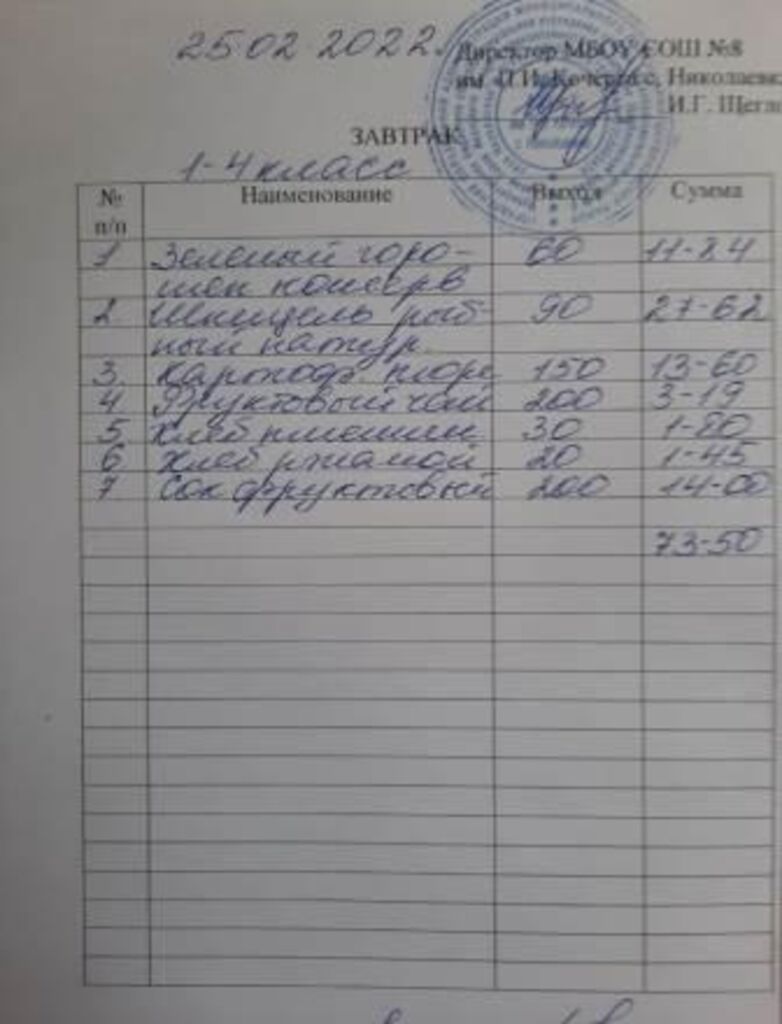 25 02 2022.
Директор МБОУ СОШ №8
им П.И. Кочерги с. Николаевс
И.Г. Щегл
ЗАВТРАК
1-4 класс
№ п/п Наименование Выход Сумма
1 Зеленый горо- 60 11-84
шек консерв
2 Шницель рыб- 90 27-62
ный натур.
3. Картоф. пюре 150 13-60
4 Фруктовый чай 200 3-19
5 Хлеб пшенич. 30 1-80
6 Хлеб ржаной 20 1-45
7 Сок фруктовый 200 14-00
73-50